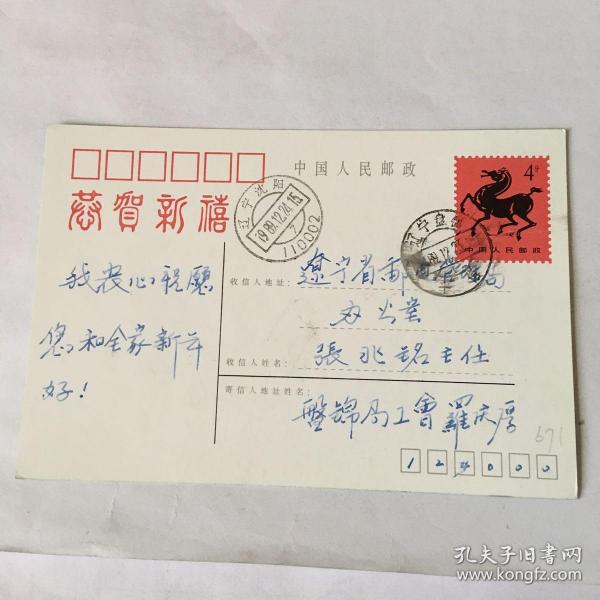 中国人民邮政
恭贺新禧
4分
中国人民邮政
辽宁沈阳
1989.12.24.15
7
110002
辽宁盘锦
89.12.2
我衷心祝愿
您和全家新年
好!
收信人地址:
辽宁省邮电管理局
收信人姓名:
張兆铭主任
寄信人地址姓名:
盤錦局工會羅庆厚
124000
671
孔夫子旧书网
www.kongfz.com